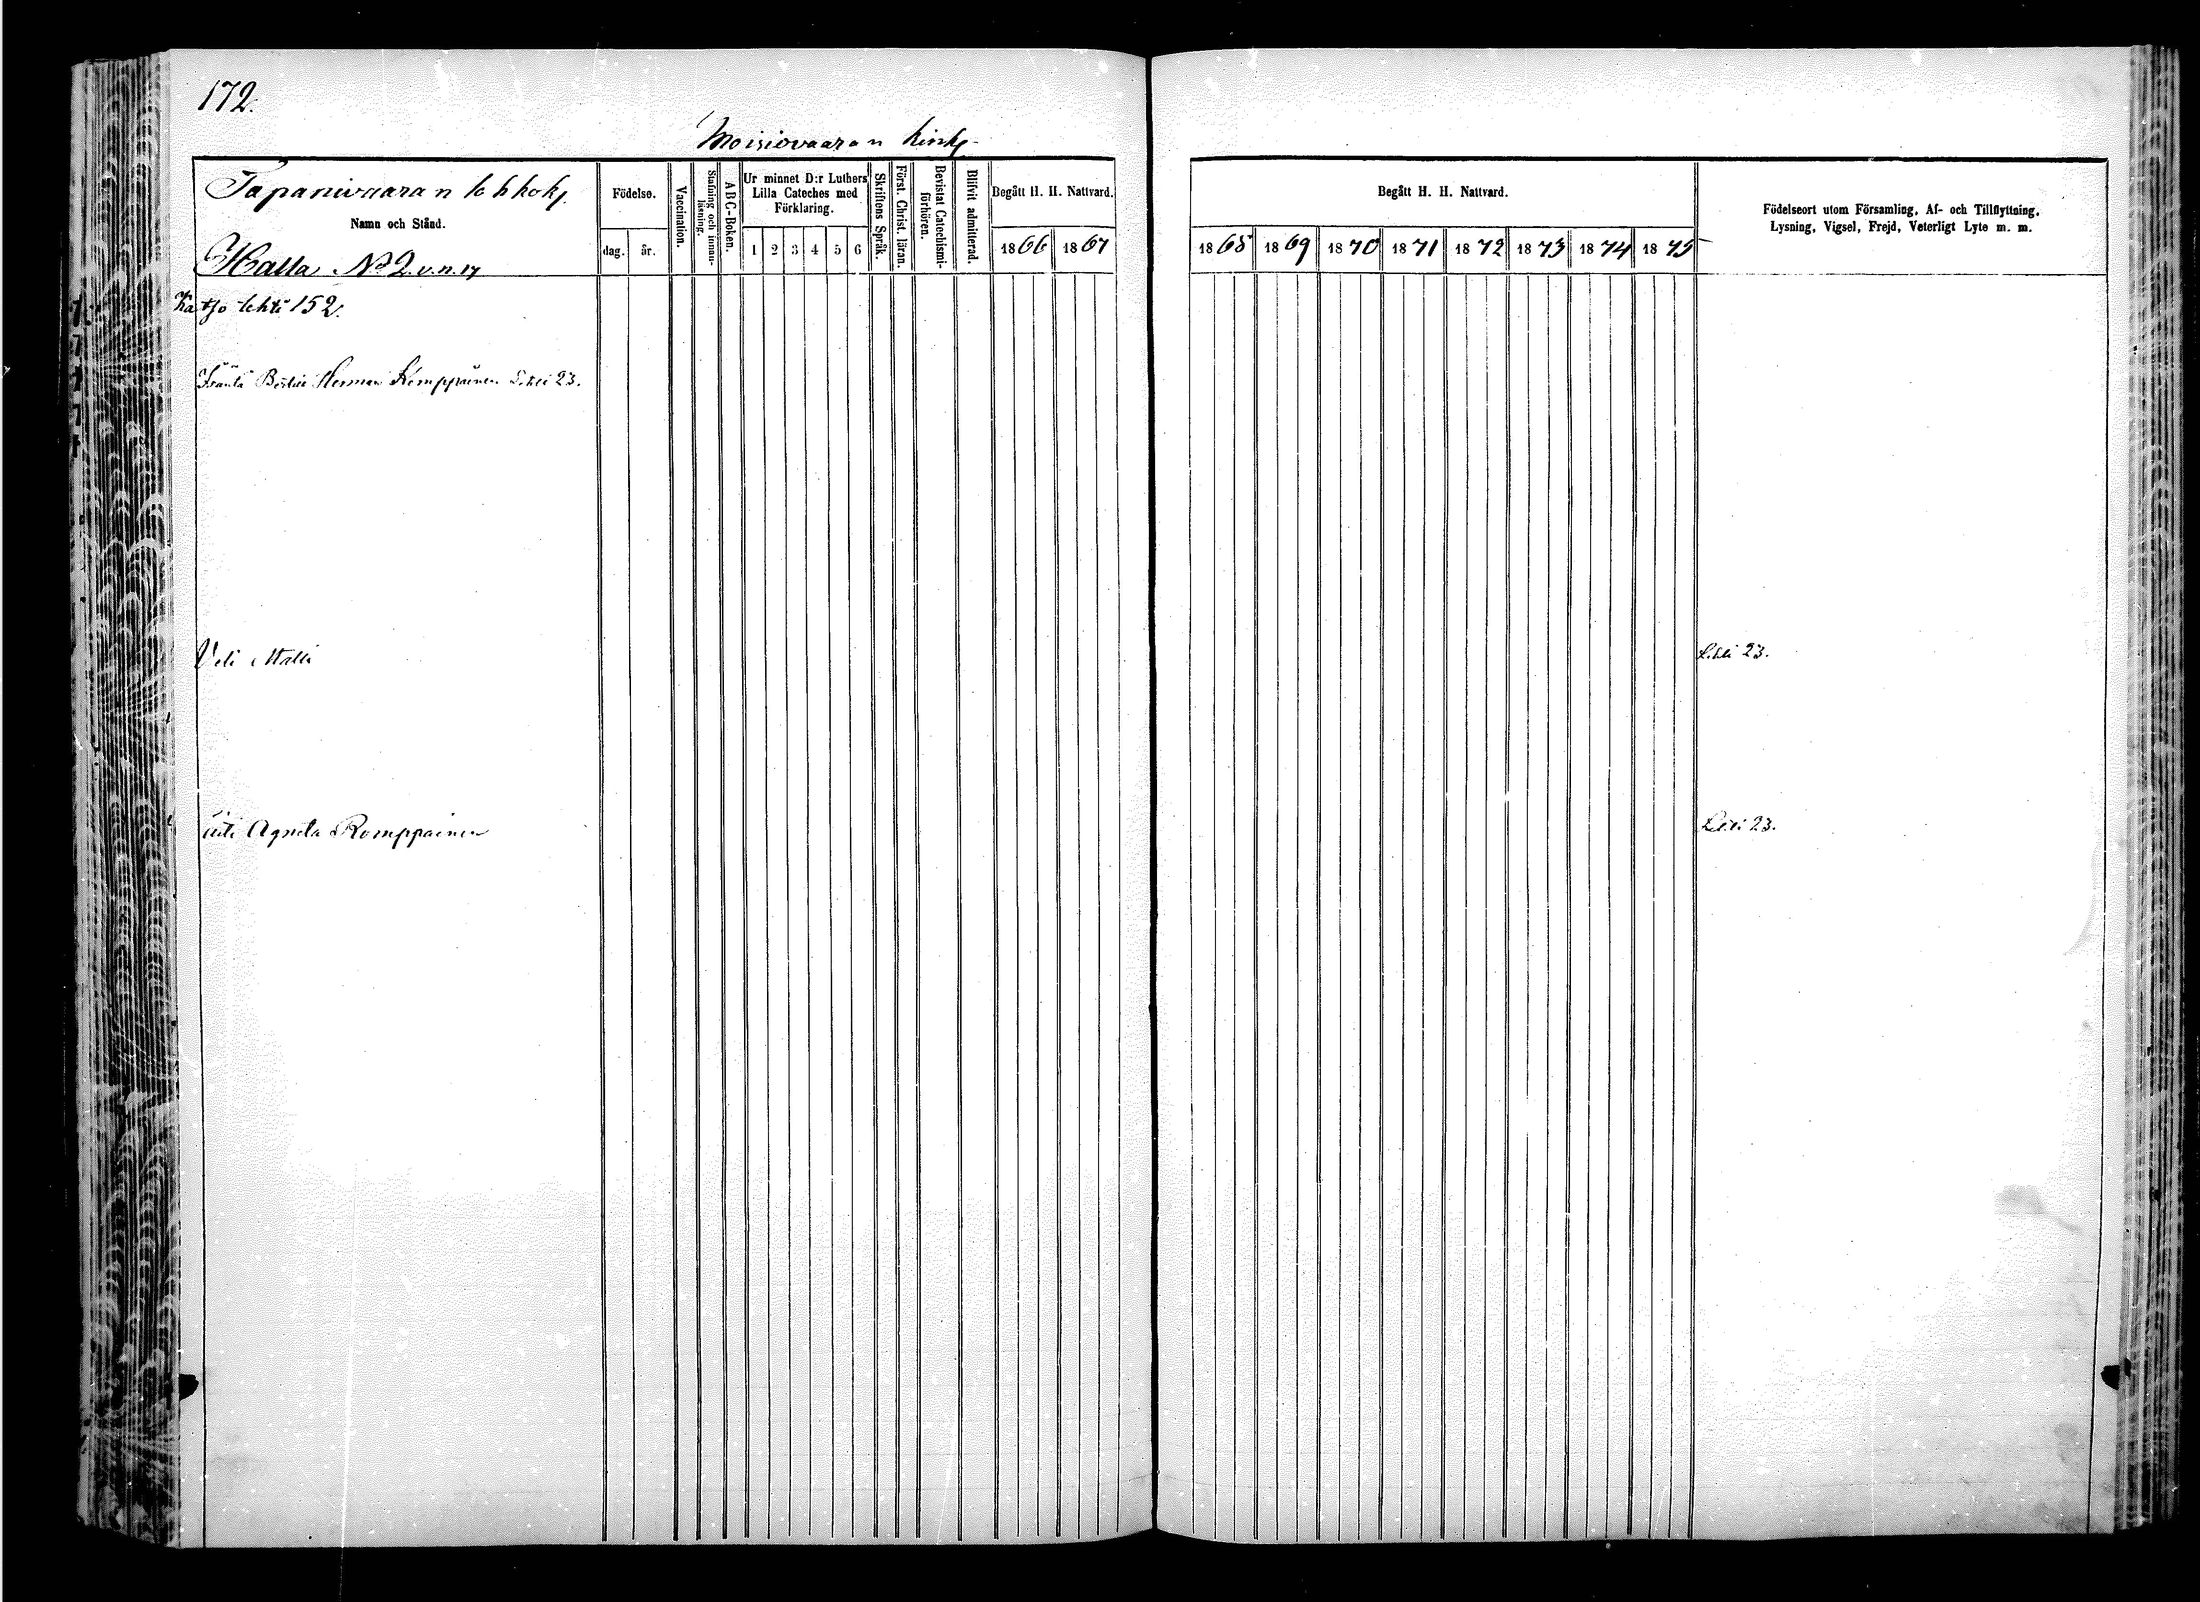 172.
Moisiovaaran kink.
Tapanivaaran lohkok.
Namn och Stånd.
Halla No 2. v. n. 17
Födelse.
dag. år.
Vaccination.
Stafning och innan-
läsning.
ABC-Boken.
Ur minnet D:r Luthers
Lilla Cateches med
Förklaring.
1 2 3 4 5 6
Skriftens Språk.
Först. Christ. läran.
Bevistat Catechismi-
förhören.
Blifvit admitterad.
Begått H. H. Nattvard.
1866 1867
Begått H. H. Nattvard.
1868 1869 1870 1871 1872 1873 1874 1875
Födelseort utom Församling, Af- och Tillflyttning,
Lysning, Vigsel, Frejd, Veterligt Lyte m. m.
Katso lehti 152.
Isäntä Herman Kemppainen Lehti 23.
Veli Matti Lehti 23.
Äiti Agneta Romppainen Lehti 23.